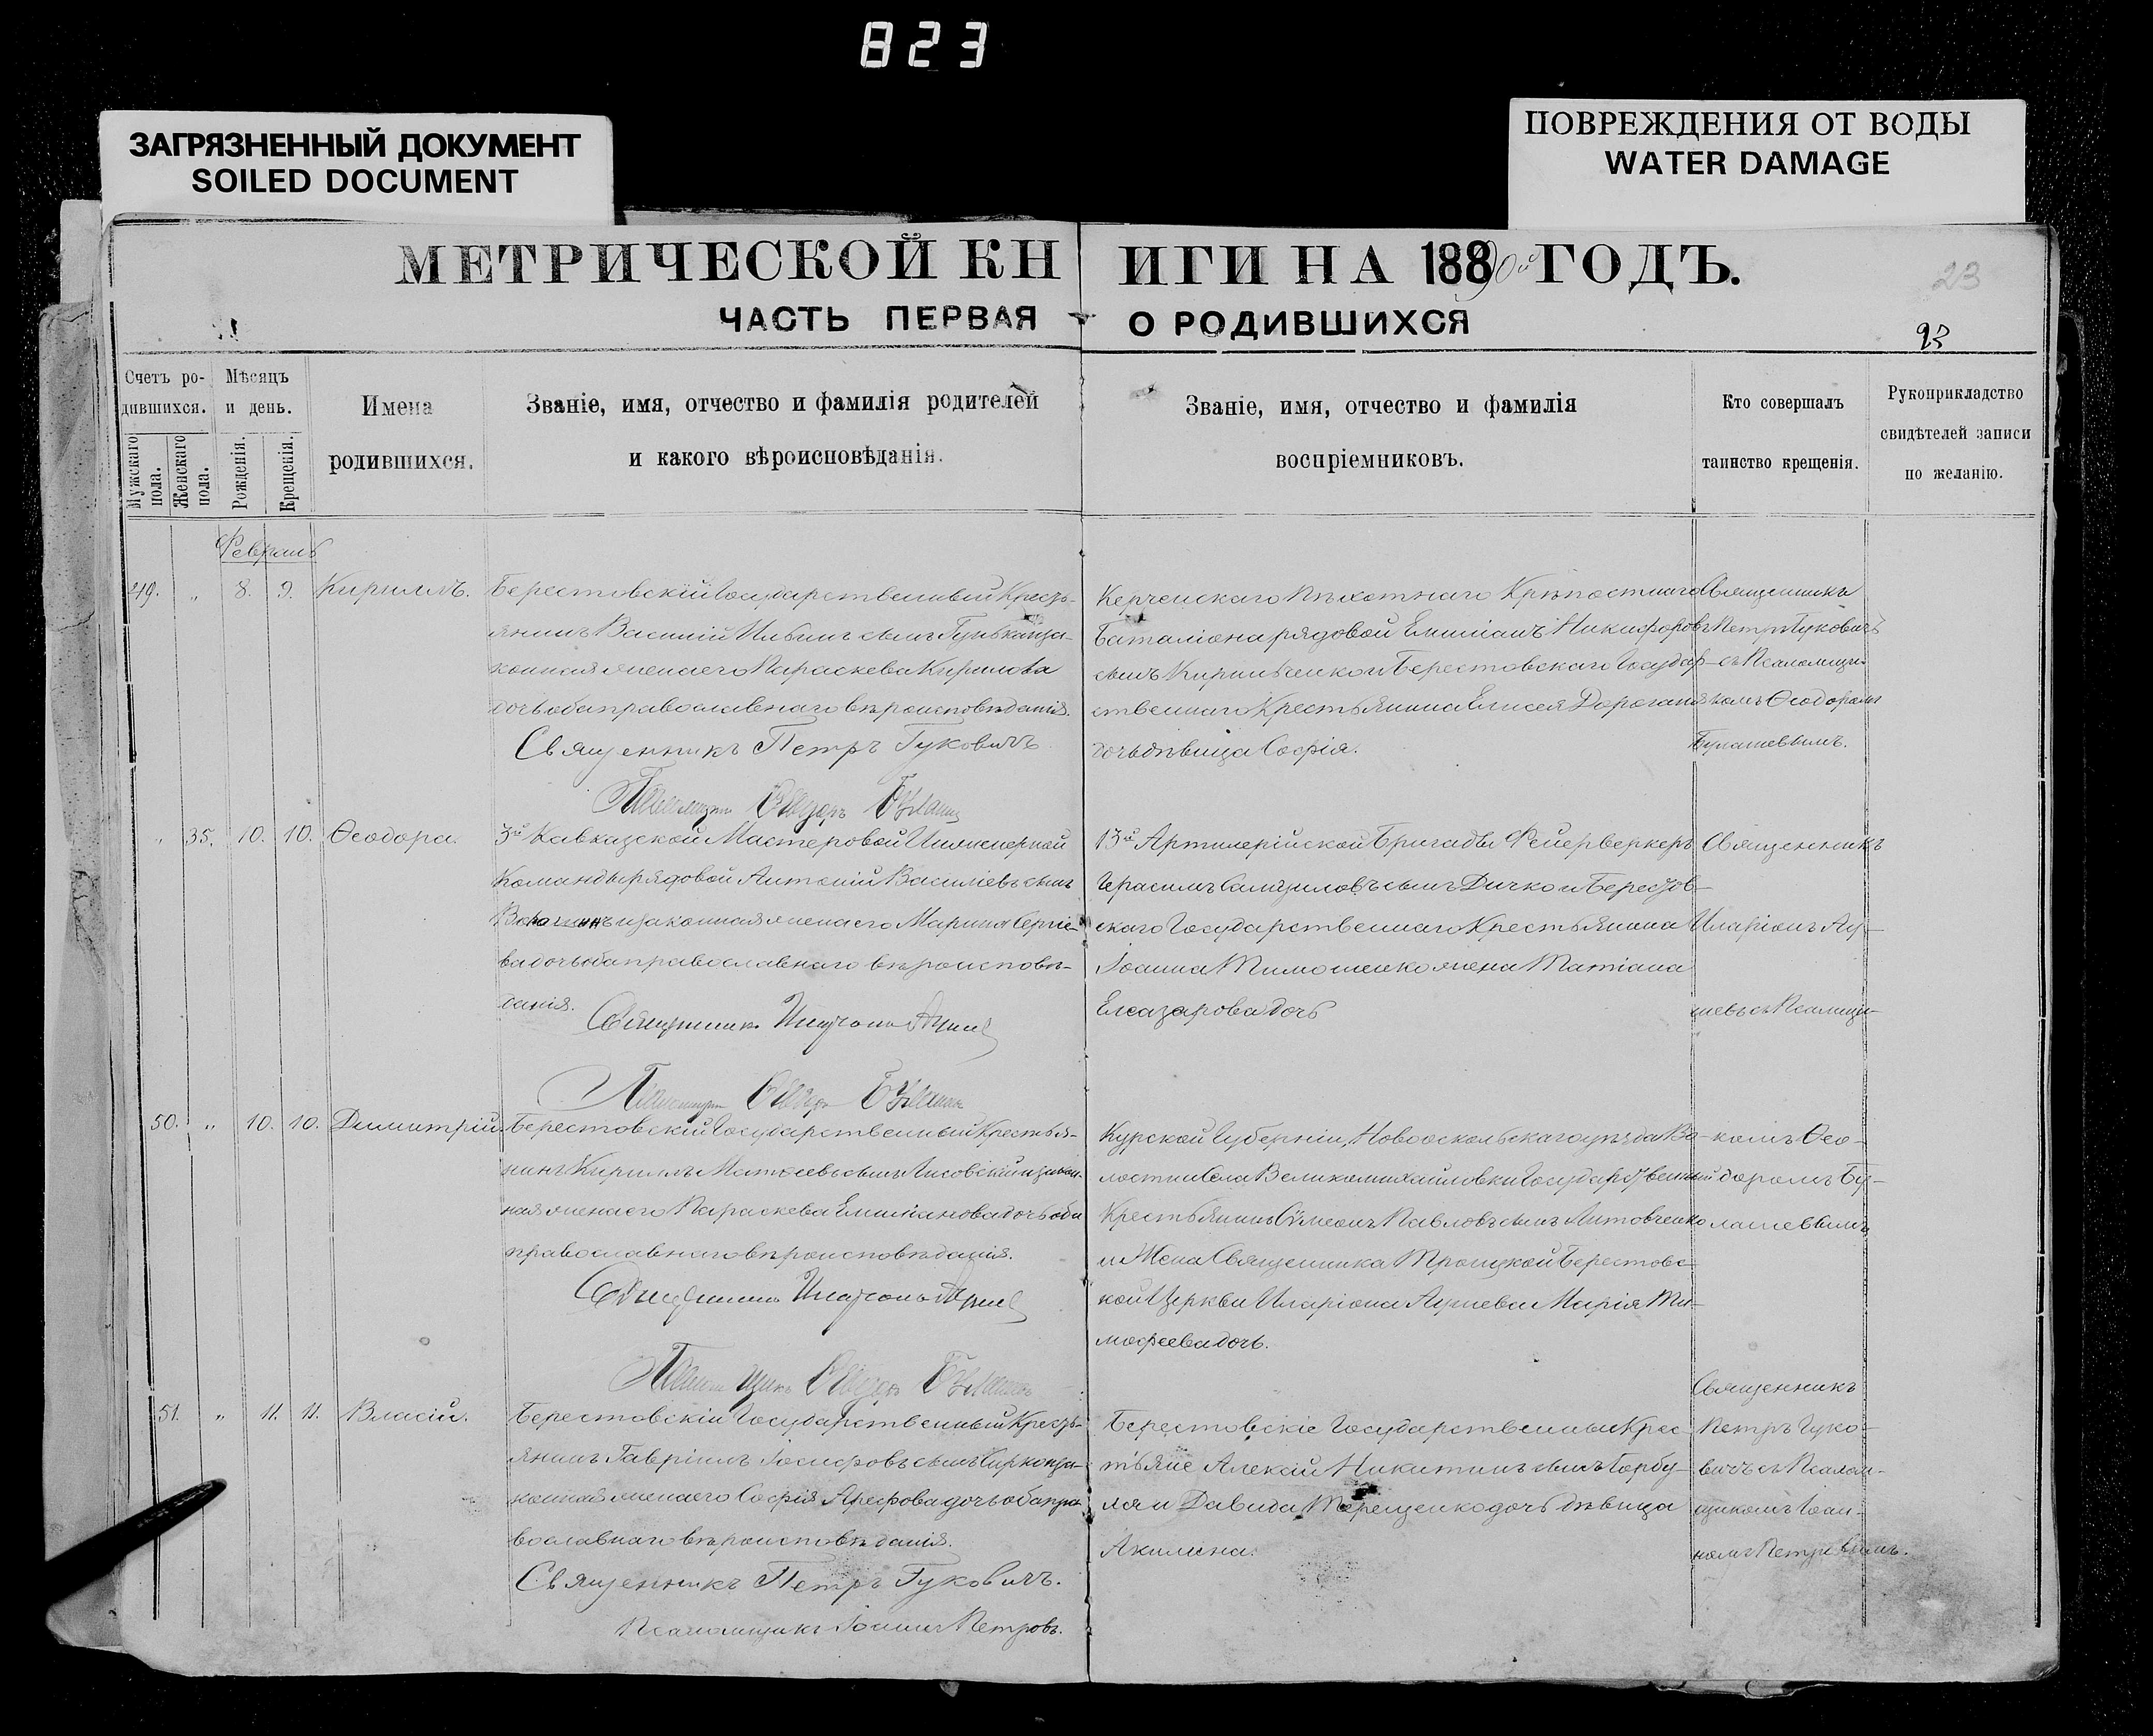 823
ЗАГРЯЗНЕННЫЙ ДОКУМЕНТ
SOILED DOCUMENT
ПОВРЕЖДЕНИЯ ОТ ВОДЫ
WATER DAMAGE
МЕТРИЧЕСКОЙ КНИГИ НА 1890й ГОДЪ.
23
ЧАСТЬ ПЕРВАЯ О РОДИВШИХСЯ
23
Счетъ ро-
дившихся.
Мужскаго пола.
Женскаго пола.
Мѣсяцъ
и день.
Рожденія.
Крещенія.
Имена
родившихся.
Званіе, имя, отчество и фамилія родителей
и какого вѣроисповѣданія.
Званіе, имя, отчество и фамилія
воспріемниковъ.
Кто совершалъ
таинство крещенія.
Рукоприкладство
свидѣтелей записи
по желанію.
Февраль
49. " 8. 9. Кириллъ.
Берестовскій Государственный Кресть-
янинъ Василій Ильинъ сынъ и за-
конная жена его Параскева Кирилова
дочь оба православнаго вѣроисповѣданія.
Священникъ Петръ Гуковичъ
Керченскаго Пѣхотнаго Крѣпостнаго
Баталіона рядовой Емиліанъ Никифоровъ
сынъ Кириленко и Берестовскаго Государ-
ственнаго Крестьянина Елисея Дороганя
дочь дѣвица Софія.
Священникъ
Петръ Гуковичъ
съ Псаломщи-
комъ Ѳеодоромъ
Булашевымъ.
" 35. 10. 10. Ѳеодора.
3й Кавказской Мастеровой Инженерной
Команды рядовой Антоній Василіевъ сынъ
и законная жена его Марина Сергіе-
ва дочь оба православнаго вѣроисповѣ-
данія.
Священникъ
13й Артилерійской Бригады Фейерверкеръ
Герасимъ Самуиловъ сынъ Дичко и Берестов-
скаго Государственнаго Крестьянина
Іоанна Тимошенко жена Татіана
Елеазарова дочь
Священникъ
Иларіонъ
съ Псаломщи-
50. " 10. 10. Димитрій.
Берестовскій Государственный Крестья-
нинъ Кириллъ Матѳеевъ сынъ Лисовскій и закон-
ная жена его Параскева Емиліанова дочь оба
православнаго вѣроисповѣданія.
Священникъ
Курской Губерніи, Новооскольскаго уѣзда Во-
лости и Села Великомихайловки Государственный
Крестьянинъ Сѵмеонъ Павловъ сынъ Литовченко
и Жена Священника Троицкой Берестовс-
кой Церкви Иларіона Марія Ти-
моѳеева дочь.
комъ Ѳео-
доромъ Бу-
лашевымъ
51. " 11. 11. Власій.
Берестовскій Государственный Кресть-
янинъ Гавріилъ Іосифовъ сынъ и за-
конная жена его Софія Арефова дочь оба пра-
вославнаго вѣроисповѣданія.
Священникъ Петръ Гуковичъ.
Псаломщикъ Іоаннъ Петровъ.
Берестовскіе Государственные Крес-
тьяне Алексій Никитинъ сынъ Горбу-
ля и Давида Терещенко дочь дѣвица
Акилина.
Священникъ
Петръ Гуко-
вичъ съ Псалом-
щикомъ Іоан-
номъ Петровымъ.